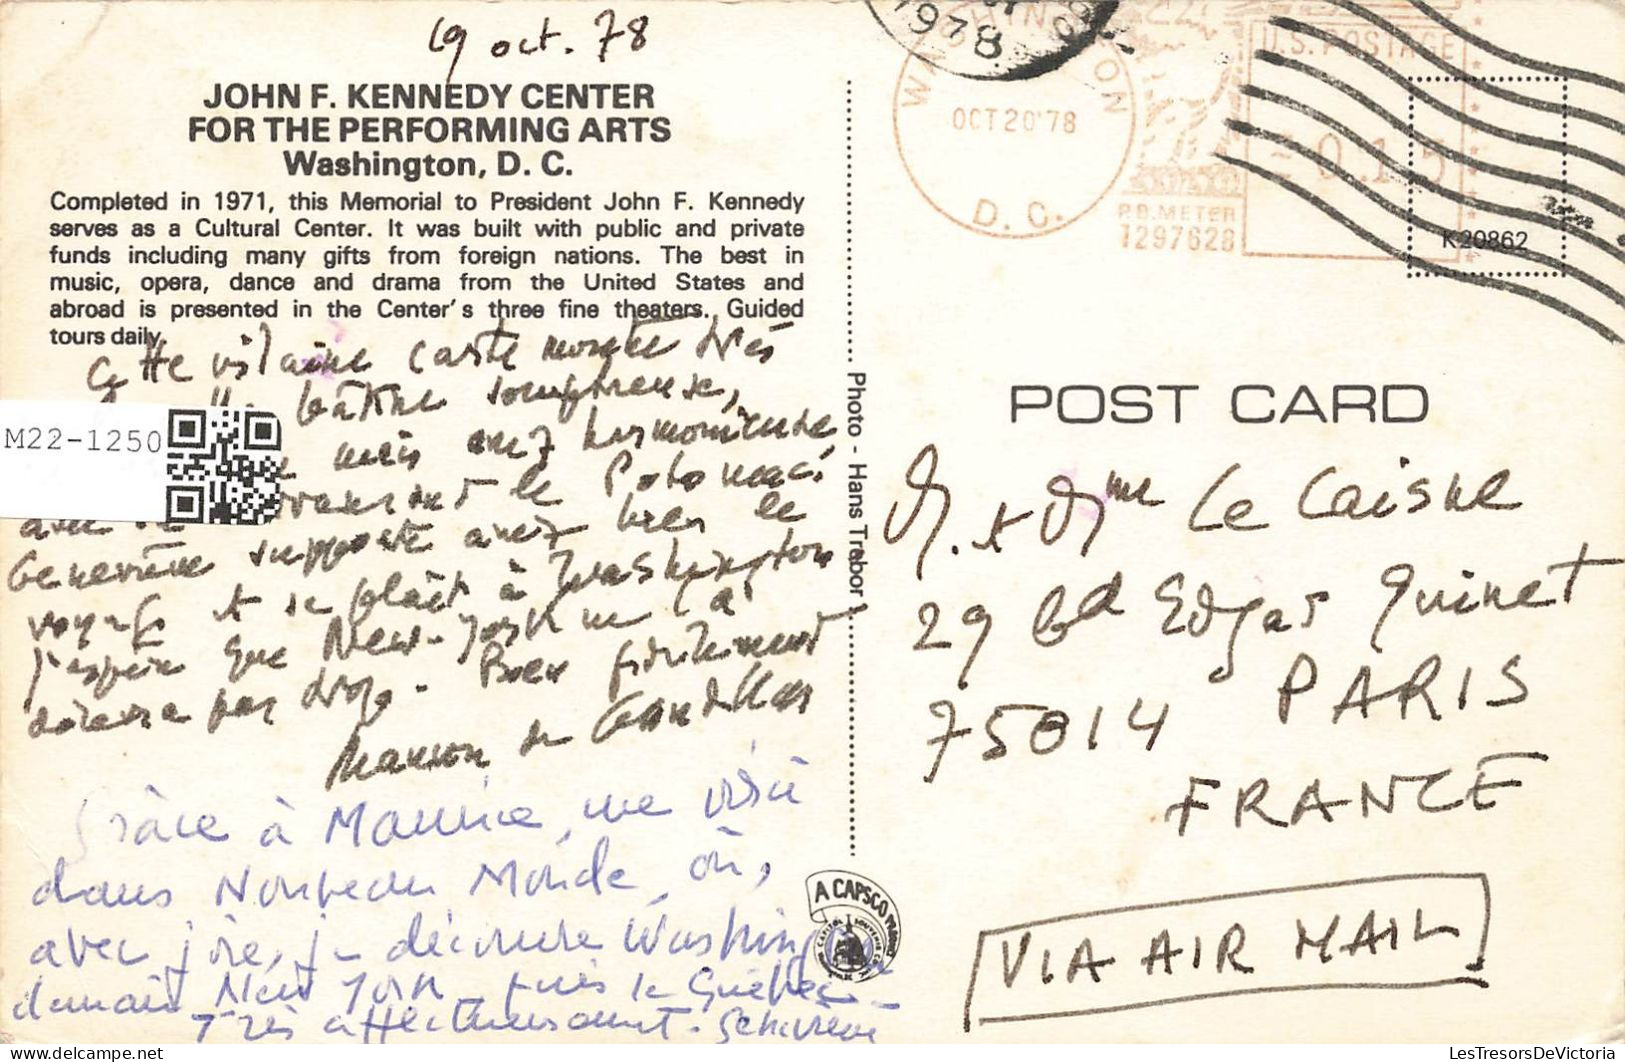 19 oct. 78
JOHN F. KENNEDY CENTER
FOR THE PERFORMING ARTS
Washington, D. C.
Completed in 1971, this Memorial to President John F. Kennedy
serves as a Cultural Center. It was built with public and private
funds including many gifts from foreign nations. The best in
music, opera, dance and drama from the United States and
abroad is presented in the Center's three fine theaters. Guided
tours daily.
Cette vilaine carte montre très
bâtisse somptueuse,
mais assez harmonieuse
le Potomac.
Geneviève supporte assez bien le
voyage et se plaît à Washington
J'espère que New-York ne la
décevra pas trop - Bien fidèlement
Grâce à Maurice, me voici
dans Nouveau Monde, où,
avec joie, je découvre Washington
demain New York, puis le Québec -
Très affectueusement - Geneviève
M22-1250
Photo - Hans Trabor
A CAPSCO PRODUCT
1978
WASHINGTON
D. C.
OCT 20 '78
P.B. METER
1297628
U.S. POSTAGE
0.15
K20862
POST CARD
M. et Mme Le Caisne
29 bd Edgar Quinet
75014 PARIS
FRANCE
VIA AIR MAIL
LesTresorsDeVictoria